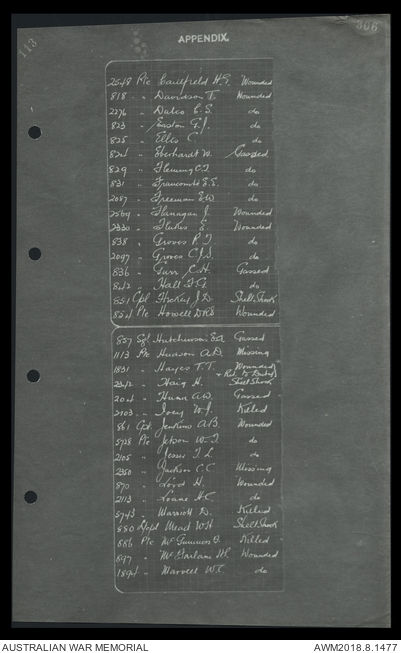 113
366
APPENDIX.
2548 Pte Caulfield H.G. Wounded
818 " Davidson T. Wounded
2276 " Dales C.S. do
823 " Easton G.J. do
825 " Ellis C. do
824 " Eberhardt W. Gassed
829 " Fleming C.T. do
831 " Franconite E.E. do
2087 " Freeman E.W. do
2569 " Flanagan J. Wounded
2330 " Flukes E. Wounded
838 " Groves R.T. do
2097 " Groves C.J.S. do
836 " C.H. Gassed
842 " Hall F.G. do
851 Cpl J.D. Shell Shock
854 Pte Howell Wounded
857 Sgt Hutchinson Gassed
1113 Pte Hudson A.D. Missing
1831 " Hayes T.T. Wounded
+ Ret. to Duty
2342 " Haig H. Shell Shock
204 " Hunn A.W. Gassed
2103 " Ivey W.J. Killed
861 Cpl. Jenkins A.B. Wounded
5728 Pte Jetson W.T. do
2105 " T.L. do
2350 " Jackson C.C. Missing
870 " Loyd H. Wounded
2113 " Loane H.C. do
5743 " Marriott D. Killed
880 Mead W.H. Shell Shock
886 Pte Killed
897 " McFarlane Wounded
1894 " Marvell W.C. do
AUSTRALIAN WAR MEMORIAL
AWM2018.8.1477